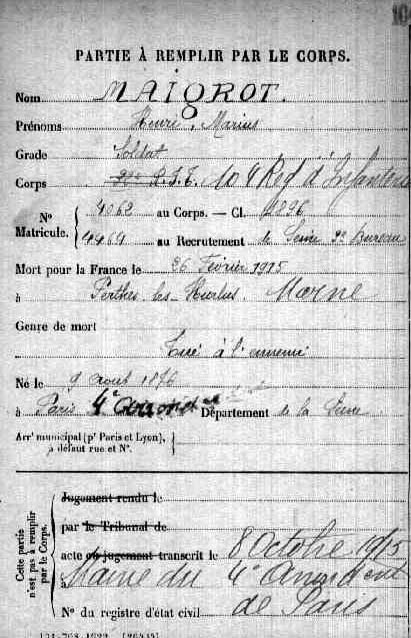 10
PARTIE À REMPLIR PAR LE CORPS.
Nom MAIGROT.
Prénoms Henri, Marius
Grade Soldat
Corps 104 Reg d'Infanterie
Nº Matricule. 4062 au Corps. — Cl. 1896
4464 au Recrutement la Seine 3e Bureau
Mort pour la France le 26 Février 1915
à Perthes-les-Hurlus, Marne
Genre de mort
Tué à l'ennemi
Né le 9 aout 1876
à Paris 4e Arrond Département de la Seine
Arr' municipal (p' Paris et Lyon),
à défaut rue et N°.
Cette partie n'est pas à remplir par le Corps.
Jugement rendu le
par le Tribunal de
acte ou jugement transcrit le 8 Octobre 1915
à Mairie du 4e Arrondent
de Paris
N° du registre d'état civil